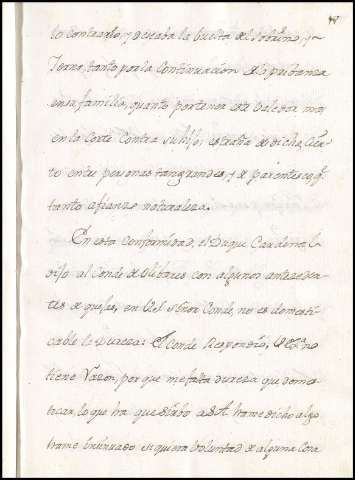 lo contrario, y deseaba la buelta del sobrino, y
Yerno, tanto por la Continuacion de la pribanza
en su familia, quanto por tener este baledor mas
en la Corte Contra su hijo: estraña desdicha, cier
to entre personas tan grandes, y de parentesco, q̃
tanto afianza naturaleza.
En esta Conformidad, el Duque Cardenal
dijo al Conde de Olibares con algunos anteceden
tes de quejas, en Vsl señor Conde, no es domesti
cable la Dureza: El Conde Respondio, V Em.ª no
tiene Razon, por que me falta dureza que domes
ticar, lo que ha querido S.A. hame dicho algo
hame insinuado siquiera Voluntad de alguna Cosa